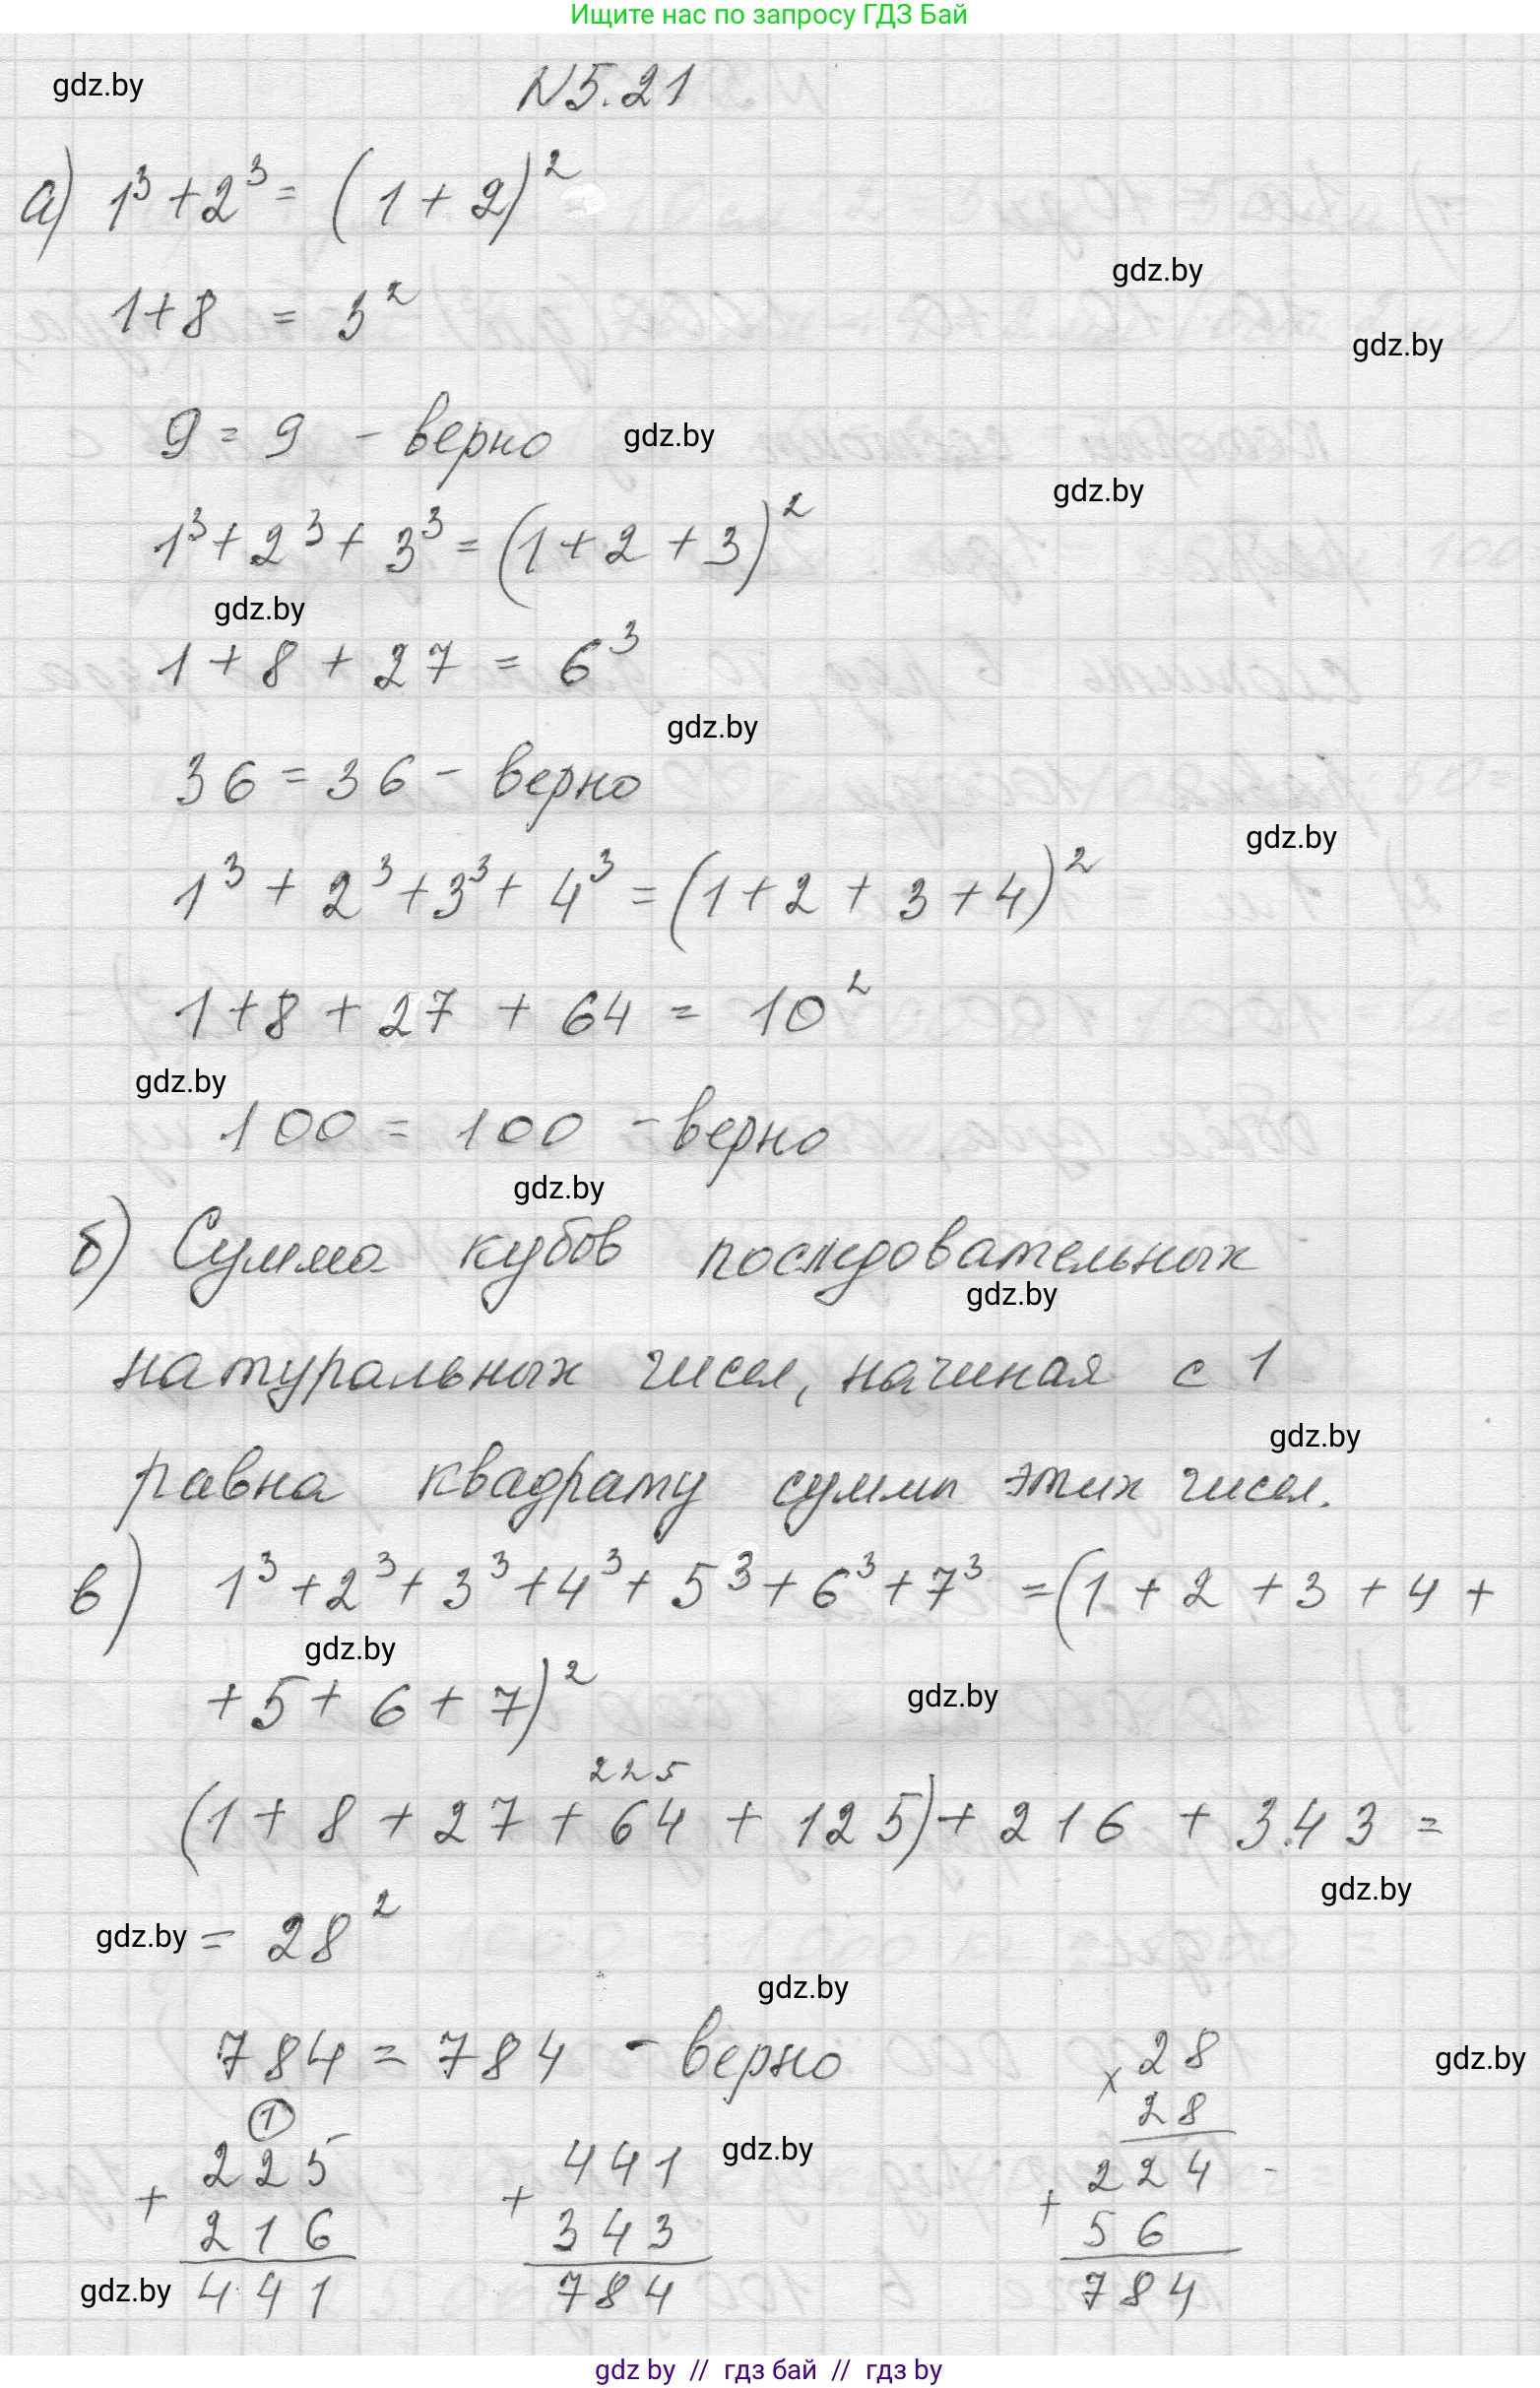 Ищите нас по запросу ГДЗ Бай
gdz.by
N5.21
а) 1³ + 2³ = (1 + 2)²
gdz.by
1 + 8 = 3²
gdz.by
9 = 9 - верно
gdz.by
gdz.by
1³ + 2³ + 3³ = (1 + 2 + 3)²
gdz.by
1 + 8 + 27 = 6³
gdz.by
36 = 36 - верно
gdz.by
1³ + 2³ + 3³ + 4³ = (1 + 2 + 3 + 4)²
1 + 8 + 27 + 64 = 10²
gdz.by
100 = 100 - верно
gdz.by
б) Сумма кубов последовательных
gdz.by
натуральных чисел, начиная с 1
gdz.by
равна квадрату суммы этих чисел.
в) 1³ + 2³ + 3³ + 4³ + 5³ + 6³ + 7³ = (1 + 2 + 3 + 4 +
gdz.by
+ 5 + 6 + 7)²
gdz.by
225
(1 + 8 + 27 + 64 + 125) + 216 + 343 =
gdz.by
= 28²
gdz.by
gdz.by
784 = 784 - верно
gdz.by
1
225
+
216
441
441
+
343
784
gdz.by
28
×
28
224
+
56
784
gdz.by
gdz by // гдз бай // гдз by